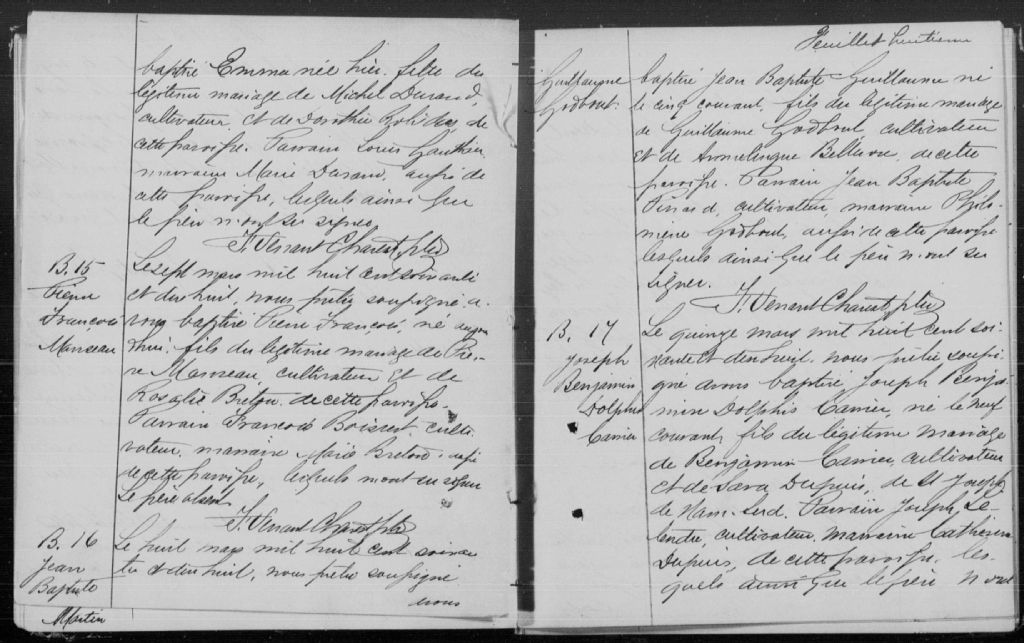 baptisé Emma née hier, fille du
légitime mariage de Michel Durand,
cultivateur, et de Dorothée de
cette paroisse. Parrain Louis Gauthier
marraine Marie Durand, aussi de
cette paroisse, lesquels ainsi que
le père n'ont su signer.
J. Venant Charest, ptre
B. 15
Pierre
François
Manseau
Le sept mars mil huit cent soixante
et dix huit, nous prêtre soussigné a-
vons baptisé Pierre François, né aujour
d'hui, fils du légitime mariage de Pier-
re Manseau, cultivateur et de
Rosalie Breton de cette paroisse.
Parrain François Boisvert culti-
vateur, marraine Marie Breton aussi
de cette paroisse, lesquels n'ont su signer
Le père absent.
J. Venant Charest, ptre
B. 16
Jean
Baptiste
Le huit mars mil huit cent soixan
te et dix huit, nous prêtre soussigné
avons
Feuillet huitième
Guillaume
Godbout
baptisé Jean Baptiste Guillaume né
le cinq courant, fils du légitime mariage
de Guillaume Godbout, cultivateur
et de Bellerose, de cette
paroisse. Parrain Jean Baptiste
Pinard, cultivateur, marraine Philo-
mène Godbout, aussi de cette paroisse
lesquels ainsi que le père n'ont su
signer.
J. Venant Charest, ptre
B. 17
Joseph
Benjamin
Dolphis
Carrier
Le quinze mars mil huit cent soi-
xante et dix huit, nous prêtre soussi-
gné avons baptisé Joseph Benja-
min Dolphis Carrier, né le neuf
courant, fils du légitime mariage
de Benjamin Carrier, cultivateur
et de Sara Dupuis, de St Joseph
de Ham-Sud. Parrain Joseph Le-
tendre, cultivateur, marraine Catherine
Dupuis, de cette paroisse, les-
quels ainsi que le père n'ont